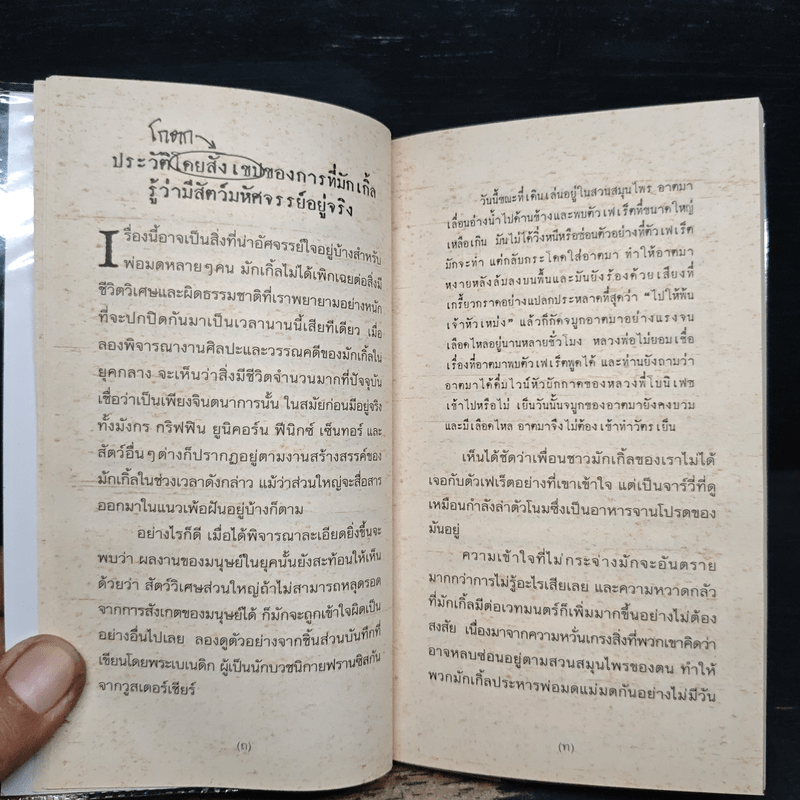 โกหก
ประวัติโดยสังเขปของการที่มักเกิ้ล
รู้ว่ามีสัตว์มหัศจรรย์อยู่จริง
เรื่องนี้อาจเป็นสิ่งที่น่าอัศจรรย์ใจอยู่บ้างสำหรับ
พ่อมดหลายๆคน มักเกิ้ลไม่ได้เพิกเฉยต่อสิ่งมี
ชีวิตวิเศษและผิดธรรมชาติที่เราพยายามอย่างหนัก
ที่จะปกปิดกันมาเป็นเวลานานนี้เสียทีเดียว เมื่อ
ลองพิจารณางานศิลปะและวรรณคดีของมักเกิ้ลใน
ยุคกลาง จะเห็นว่าสิ่งมีชีวิตจำนวนมากที่ปัจจุบัน
เชื่อว่าเป็นเพียงจินตนาการนั้น ในสมัยก่อนมีอยู่จริง
ทั้งมังกร กริฟฟิน ยูนิคอร์น ฟีนิกซ์ เซ็นทอร์ และ
สัตว์อื่นๆต่างก็ปรากฏอยู่ตามงานสร้างสรรค์ของ
มักเกิ้ลในช่วงเวลาดังกล่าว แม้ว่าส่วนใหญ่จะสื่อสาร
ออกมาในแนวเพ้อฝันอยู่บ้างก็ตาม
อย่างไรก็ดี เมื่อได้พิจารณาละเอียดยิ่งขึ้นจะ
พบว่า ผลงานของมนุษย์ในยุคนั้นยังสะท้อนให้เห็น
ด้วยว่า สัตว์วิเศษส่วนใหญ่ถ้าไม่สามารถหลุดรอด
จากการสังเกตของมนุษย์ได้ ก็มักจะถูกเข้าใจผิดเป็น
อย่างอื่นไปเลย ลองดูตัวอย่างจากชิ้นส่วนบันทึกที่
เขียนโดยพระเบเนดิก ผู้เป็นนักบวชนิกายฟรานซิสกัน
จากวูสเตอร์เชียร์
(ถ)
วันนี้ขณะที่เดินเล่นอยู่ในสวนสมุนไพร อาตมา
เลื่อนอ่างน้ำไปด้านข้างและพบตัวเฟเร็ตที่ขนาดใหญ่
เหลือเกิน มันไม่ได้วิ่งหนีหรือซ่อนตัวอย่างที่ตัวเฟเร็ต
มักจะทำ แต่กลับกระโดดใส่อาตมา ทำให้อาตมา
หงายหลังล้มลงบนพื้นและมันยังร้องด้วยเสียงที่
เกรี้ยวกราดอย่างแปลกประหลาดที่สุดว่า “ไปให้พ้น
เจ้าหัวเหม่ง” แล้วก็กัดจมูกอาตมาอย่างแรงจน
เลือดไหลอยู่นานหลายชั่วโมง หลวงพ่อไม่ยอมเชื่อ
เรื่องที่อาตมาพบตัวเฟเร็ตพูดได้ และท่านยังถามว่า
อาตมาได้ดื่มไวน์หัวผักกาดของหลวงพี่โบนิเฟซ
เข้าไปหรือไม่ เย็นวันนั้นจมูกของอาตมายังคงบวม
และมีเลือดไหล อาตมาจึงไม่ต้องเข้าทำวัตรเย็น
เห็นได้ชัดว่าเพื่อนชาวมักเกิ้ลของเราไม่ได้
เจอกับตัวเฟเร็ตอย่างที่เขาเข้าใจ แต่เป็นจาร์วีที่ดู
เหมือนกำลังล่าตัวโนมซึ่งเป็นอาหารจานโปรดของ
มันอยู่
ความเข้าใจที่ไม่กระจ่างมักจะอันตราย
มากกว่าการไม่รู้อะไรเสียเลย และความหวาดกลัว
ที่มักเกิ้ลมีต่อเวทมนตร์ก็เพิ่มมากขึ้นอย่างไม่ต้อง
สงสัย เนื่องมาจากความหวั่นเกรงสิ่งที่พวกเขาคิดว่า
อาจหลบซ่อนอยู่ตามสวนสมุนไพรของตน ทำให้
พวกมักเกิ้ลประหารพ่อมดแม่มดกันอย่างไม่มีวัน
(ท)